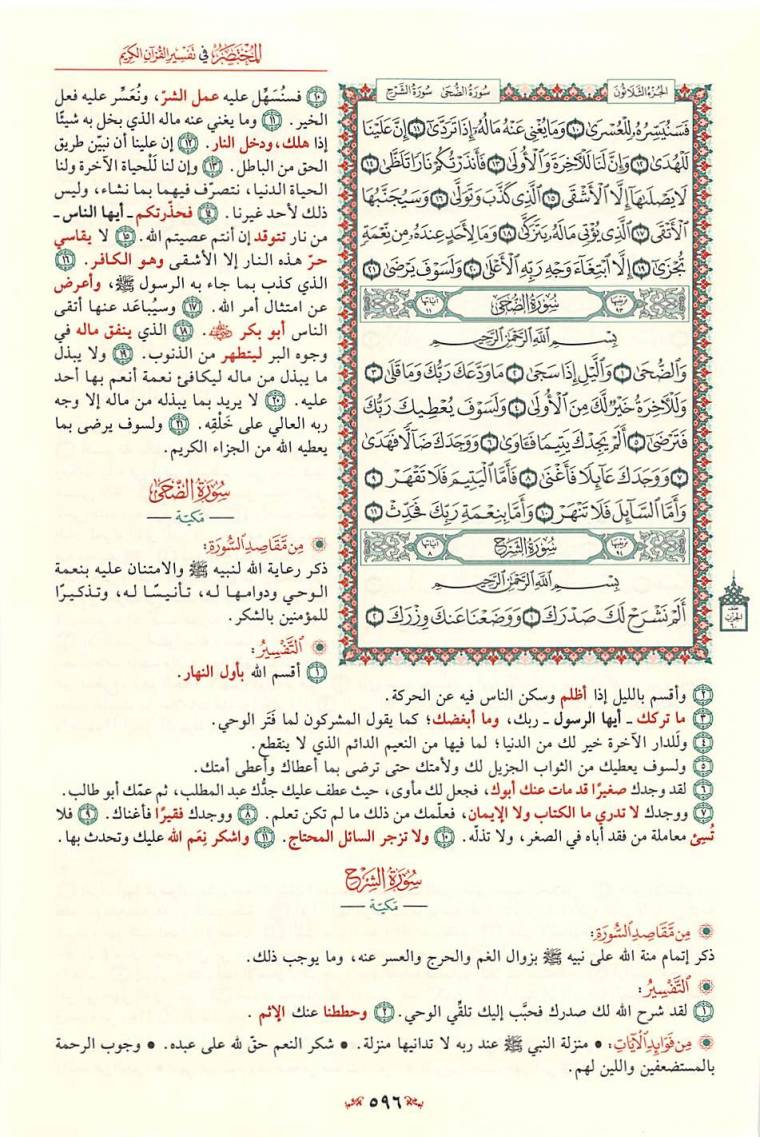 المختصر في تفسير القرآن الكريم
الجزء الثلاثون
سورة الضحى سورة الشرح
فَسَنُيَسِّرُهُۥ لِلْعُسْرَىٰ ١٠ وَمَا يُغْنِى عَنْهُ مَالُهُۥٓ إِذَا تَرَدَّىٰٓ ١١ إِنَّ عَلَيْنَا
لَلْهُدَىٰ ١٢ وَإِنَّ لَنَا لَلْـَٔاخِرَةَ وَٱلْأُولَىٰ ١٣ فَأَنذَرْتُكُمْ نَارًا تَلَظَّىٰ ١٤
لَا يَصْلَىٰهَآ إِلَّا ٱلْأَشْقَى ١٥ ٱلَّذِى كَذَّبَ وَتَوَلَّىٰ ١٦ وَسَيُجَنَّبُهَا
ٱلْأَتْقَى ١٧ ٱلَّذِى يُؤْتِى مَالَهُۥ يَتَزَكَّىٰ ١٨ وَمَا لِأَحَدٍ عِندَهُۥ مِن نِّعْمَةٍ
تُجْزَىٰٓ ١٩ إِلَّا ٱبْتِغَآءَ وَجْهِ رَبِّهِ ٱلْأَعْلَىٰ ٢٠ وَلَسَوْفَ يَرْضَىٰ ٢١
ترتيبها ٩٣ سورة الضحى آياتها ١١
بِسْمِ ٱللَّهِ ٱلرَّحْمَٰنِ ٱلرَّحِيمِ
وَٱلضُّحَىٰ ١ وَٱلَّيْلِ إِذَا سَجَىٰ ٢ مَا وَدَّعَكَ رَبُّكَ وَمَا قَلَىٰ ٣
وَلَلْـَٔاخِرَةُ خَيْرٌ لَّكَ مِنَ ٱلْأُولَىٰ ٤ وَلَسَوْفَ يُعْطِيكَ رَبُّكَ
فَتَرْضَىٰٓ ٥ أَلَمْ يَجِدْكَ يَتِيمًا فَـَٔاوَىٰ ٦ وَوَجَدَكَ ضَآلًّا فَهَدَىٰ
٧ وَوَجَدَكَ عَآئِلًا فَأَغْنَىٰ ٨ فَأَمَّا ٱلْيَتِيمَ فَلَا تَقْهَرْ ٩
وَأَمَّا ٱلسَّآئِلَ فَلَا تَنْهَرْ ١٠ وَأَمَّا بِنِعْمَةِ رَبِّكَ فَحَدِّثْ ١١
ترتيبها ٩٤ سورة الشرح آياتها ٨
بِسْمِ ٱللَّهِ ٱلرَّحْمَٰنِ ٱلرَّحِيمِ
أَلَمْ نَشْرَحْ لَكَ صَدْرَكَ ١ وَوَضَعْنَا عَنكَ وِزْرَكَ ٢
١٠ فسنُسَهِّل عليه عمل الشرّ، ونُعَسِّر عليه فعل
الخير. ١١ وما يغني عنه ماله الذي بخل به شيئًا
إذا هلك، ودخل النار. ١٢ إن علينا أن نبيّن طريق
الحق من الباطل. ١٣ وإن لنا لَلْحياة الآخرة ولنا
الحياة الدنيا، نتصرّف فيهما بما نشاء، وليس
ذلك لأحد غيرنا. ١٤ فحذّرتكم ـ أيها الناس ـ
من نار تتوقد إن أنتم عصيتم الله. ١٥ لا يقاسي
حرّ هذه النار إلا الأشقى وهو الكافر. ١٦
الذي كذب بما جاء به الرسول ﷺ، وأعرض
عن امتثال أمر الله. ١٧ وسيُباعَد عنها أتقى
الناس أبو بكر رضي الله عنه. ١٨ الذي ينفق ماله في
وجوه البر ليتطهر من الذنوب. ١٩ ولا يبذل
ما يبذل من ماله ليكافئ نعمة أنعم بها أحد
عليه. ٢٠ لا يريد بما يبذله من ماله إلا وجه
ربه العالي على خَلْقِه. ٢١ ولسوف يرضى بما
يعطيه الله من الجزاء الكريم.
سورة الضحى
ـ مكيّة ـ
من مقاصد السورة:
ذكر رعاية الله لنبيه ﷺ والامتنان عليه بنعمة
الوحي ودوامها له، تأنيسًا له، وتذكيرًا
للمؤمنين بالشكر.
التفسير:
١ أقسم الله بأول النهار.
٢ وأقسم بالليل إذا أظلم وسكن الناس فيه عن الحركة.
٣ ما تركك ـ أيها الرسول ـ ربك، وما أبغضك؛ كما يقول المشركون لما فتَر الوحي.
٤ ولَلدار الآخرة خير لك من الدنيا؛ لما فيها من النعيم الدائم الذي لا ينقطع.
٥ ولسوف يعطيك من الثواب الجزيل لك ولأمتك حتى ترضى بما أعطاك وأعطى أمتك.
٦ لقد وجدك صغيرًا قد مات عنك أبوك، فجعل لك مأوى، حيث عطف عليك جدُّك عبد المطلب، ثم عمّك أبو طالب.
٧ ووجدك لا تدري ما الكتاب ولا الإيمان، فعلّمك من ذلك ما لم تكن تعلم. ٨ ووجدك فقيرًا فأغناك. ٩ فلا
تُسِئ معاملة من فقد أباه في الصغر، ولا تذلّه. ١٠ ولا تزجر السائل المحتاج. ١١ واشكر نِعَم الله عليك وتحدث بها.
سورة الشرح
ـ مكيّة ـ
من مقاصد السورة:
ذكر إتمام منة الله على نبيه ﷺ بزوال الغم والحرج والعسر عنه، وما يوجب ذلك.
التفسير:
١ لقد شرح الله لك صدرك فحبَّب إليك تلقِّي الوحي. ٢ وحططنا عنك الإثم .
من فوائد الآيات: • منزلة النبي ﷺ عند ربه لا تدانيها منزلة. • شكر النعم حقّ لله على عبده. • وجوب الرحمة
بالمستضعفين واللين لهم.
٥٩٦